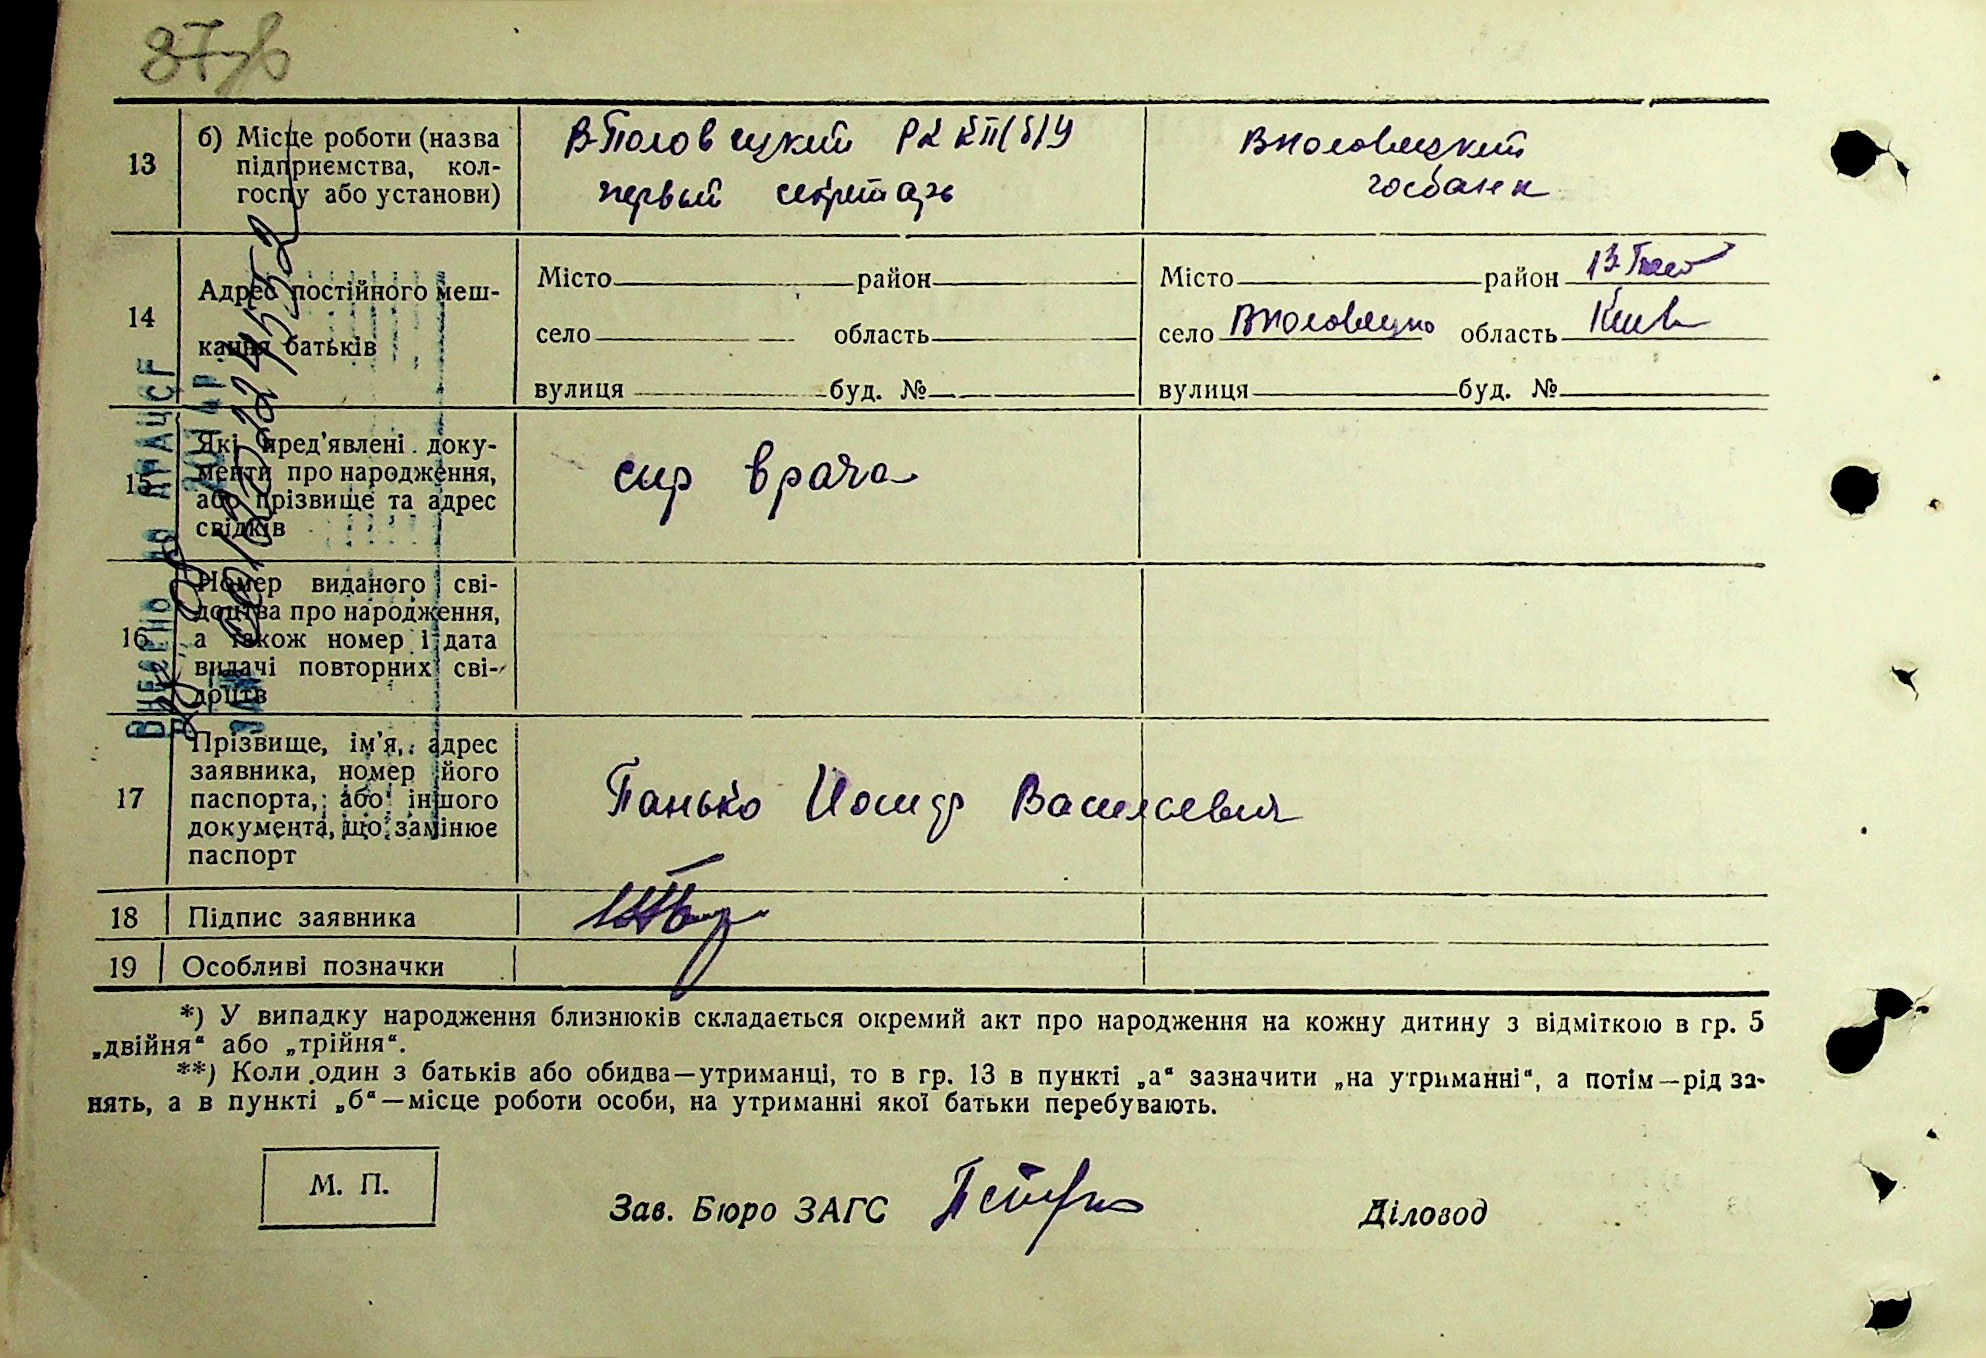 87зв
13 б) Місце роботи (назва підприємства, колгоспу або установи)
В-Половецкий РК КП(б)У
первый секретарь
Вполовецкий
госбанк
14 Адрес постійного меш-
кання батьків
Місто район
село область
вулиця буд. №
Місто район В-Пол
село Вполовецко область Киев
вулиця буд. №
15 Які пред'явлені доку-
менти про народження,
або прізвище та адрес
свідків
спр врача
16 Номер виданого сві-
доцтва про народження,
а також номер і дата
видачі повторних сві-
доцтв
17 Прізвище, ім'я, адрес
заявника, номер його
паспорта, або іншого
документа, що замінює
паспорт
Панько Иосиф Васильевич
18 Підпис заявника
19 Особливі позначки
*) У випадку народження близнюків складається окремий акт про народження на кожну дитину з відміткою в гр. 5
„двійня“ або „трійня“.
**) Коли один з батьків або обидва—утриманці, то в гр. 13 в пункті „а“ зазначити „на утриманні“, а потім—рід за-
нять, а в пункті „б“—місце роботи особи, на утриманні якої батьки перебувають.
М. П.
Зав. Бюро ЗАГС
Діловод